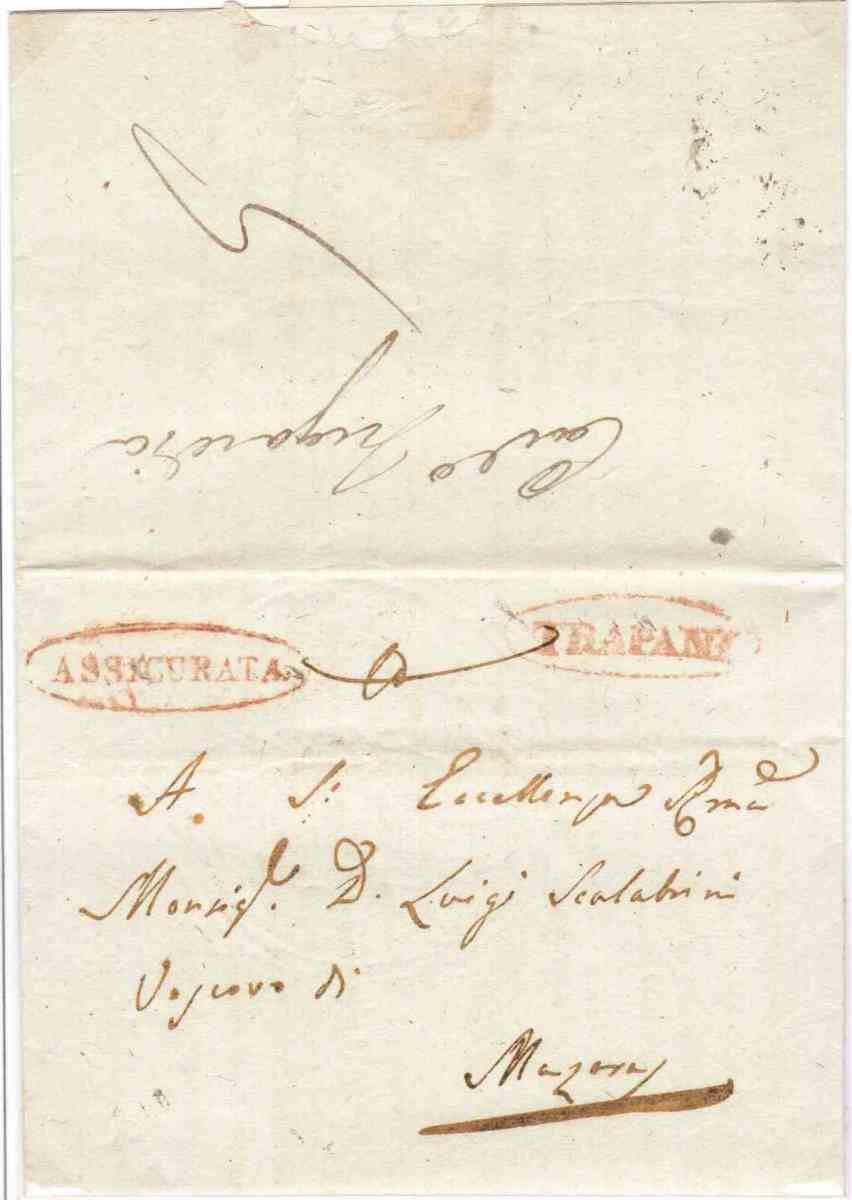 ASSICURATA TRAPANI
A. S. Eccellenza Rma
Monsigr. D. Luigi Scalabrini
Vescovo di
Mazara